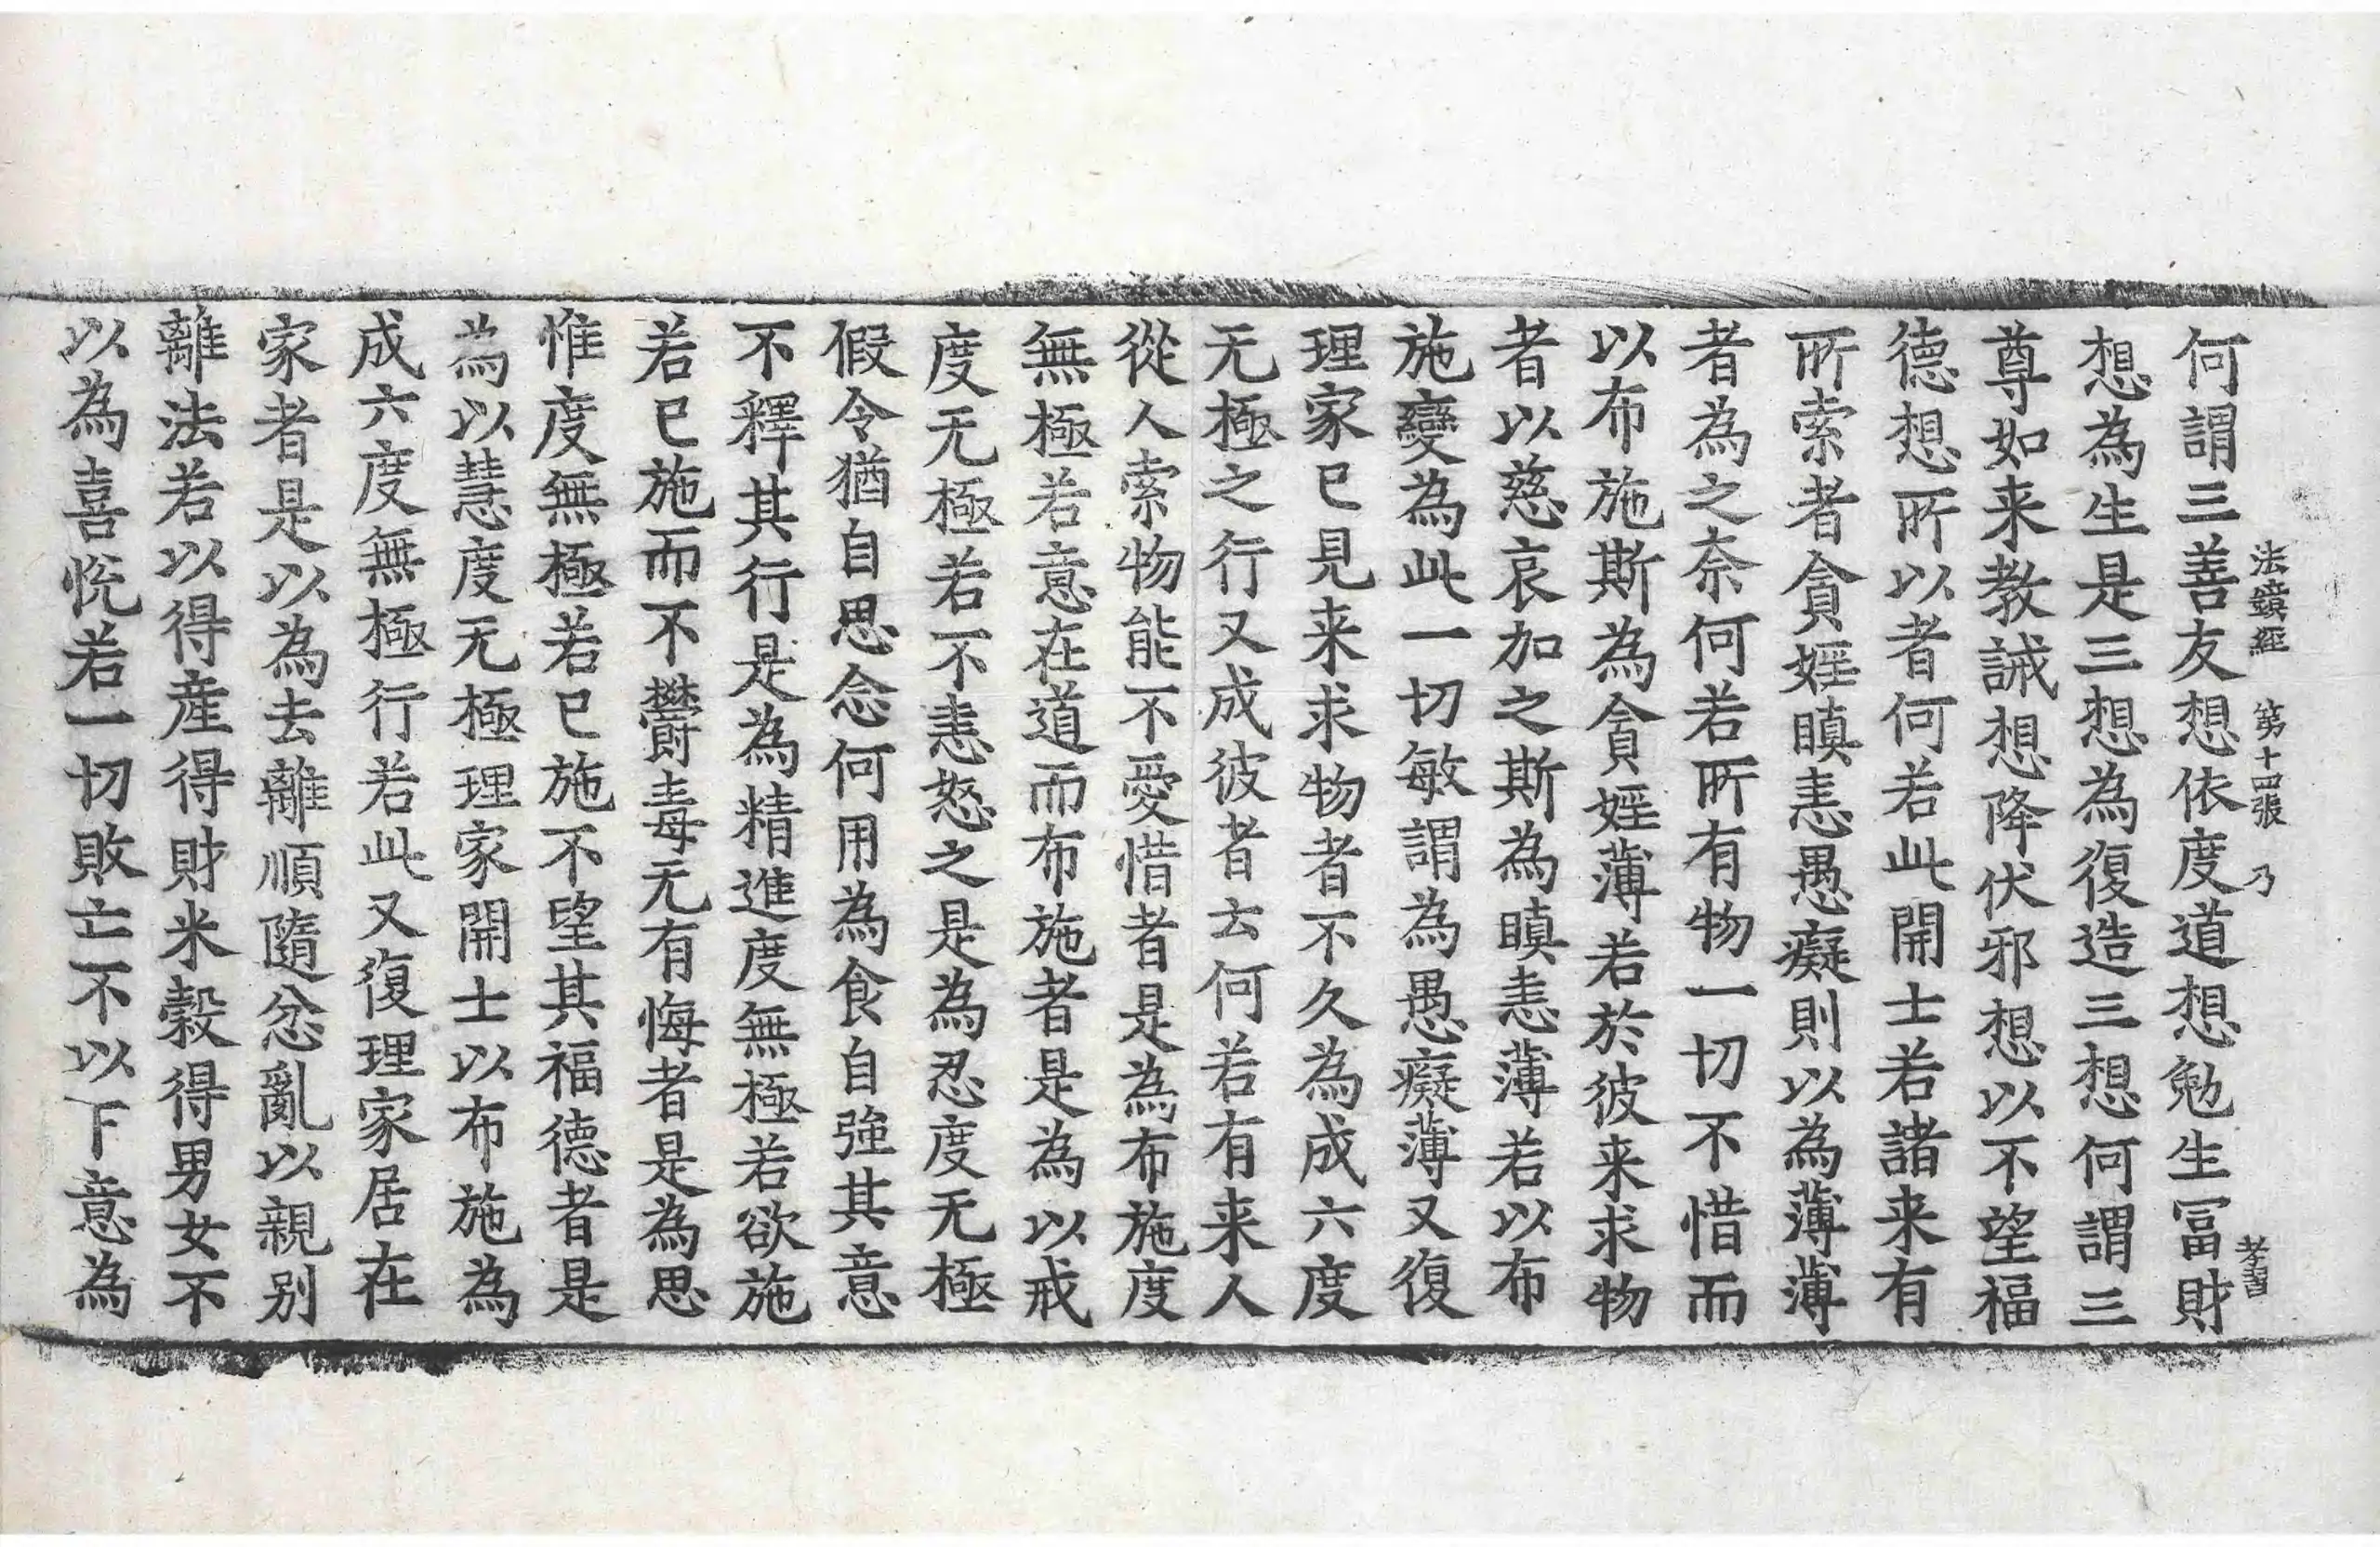 法鏡經 第十四張 乃 孝習
何謂三善友想依度道想勉生冨財
想為生是三想為復造三想何謂三
尊如来教誡想降伏邪想以不望福
德想所以者何若此開士若諸来有
所索者貪婬瞋恚愚癡則以為薄薄
者為之奈何若所有物一切不惜而
以布施斯為貪婬薄若於彼来求物
者以慈哀加之斯為瞋恚薄若以布
施變為此一切敏謂為愚癡薄又復
理家已見来求物者不久為成六度
无極之行又成彼者去何若有来人
從人索物能不愛惜者是為布施度
無極若意在道而布施者是為以戒
度无極若不恚怒之是為忍度无極
假令猶自思念何用為食自強其意
不釋其行是為精進度無極若欲施
若已施而不欝毒无有悔者是為思
惟度無極若已施不望其福德者是
為以慧度无極理家開士以布施為
成六度無極行若此又復理家居在
家者是以為去離順隨忿亂以親别
離法若以得産得財米糓得男女不
以為喜恱若一切敗亡不以下意為